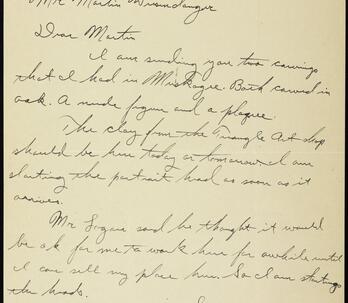 Mr Martin Wiesendanger
Dear Martin
I am sending you two carvings
that I had in Muskogee. Both carved in
oak. A nude figure and a plaque.
The clay from the Triangle Art shop
should be here today or tomorrow. I am
starting the portrait head as soon as it
arrives.
Mr Logan said he thought it would
be ok for me to work here for awhile until
I can sell my place here. So I am starting
the heads.